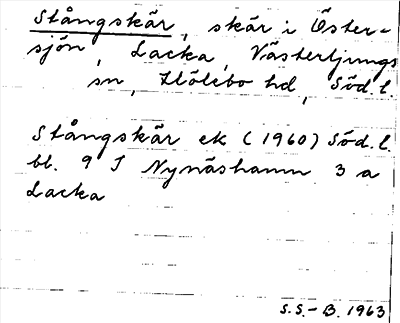 Stångskär, skär i Öster-
sjön, Lacka, Västerljungs
sn, Hölebo hd, Söd.l.
Stångskär ek (1960) Söd.l.
bl. 9 I Nynäshamn 3 a
Lacka
S.S.-B. 1963